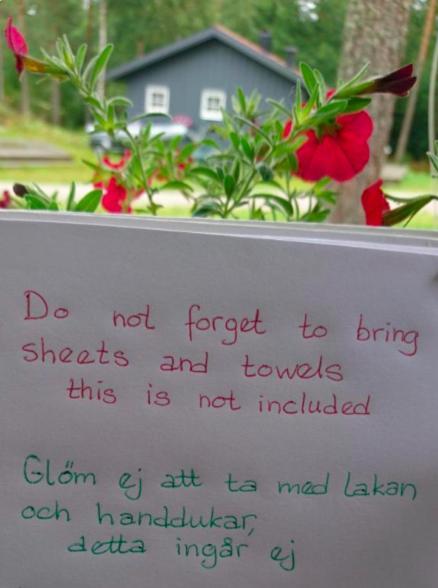 Do not forget to bring
sheets and towels
this is not included
Glöm ej att ta med lakan
och handdukar,
detta ingår ej